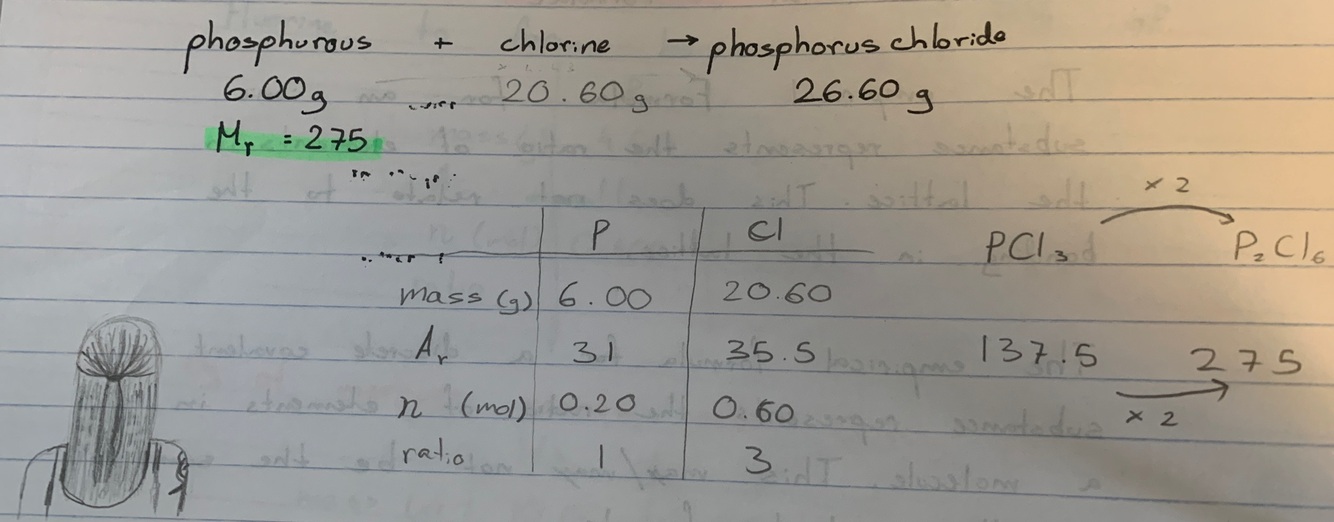 phosphurous + chlorine → phosphorus chloride
6.00g 20.60g 26.60 g
Mr = 275
× 2
P Cl PCl₃ P₂Cl₆
mass (g) 6.00 20.60
Ar 31 35.5 137.5 275
n (mol) 0.20 0.60 × 2
ratio 1 3